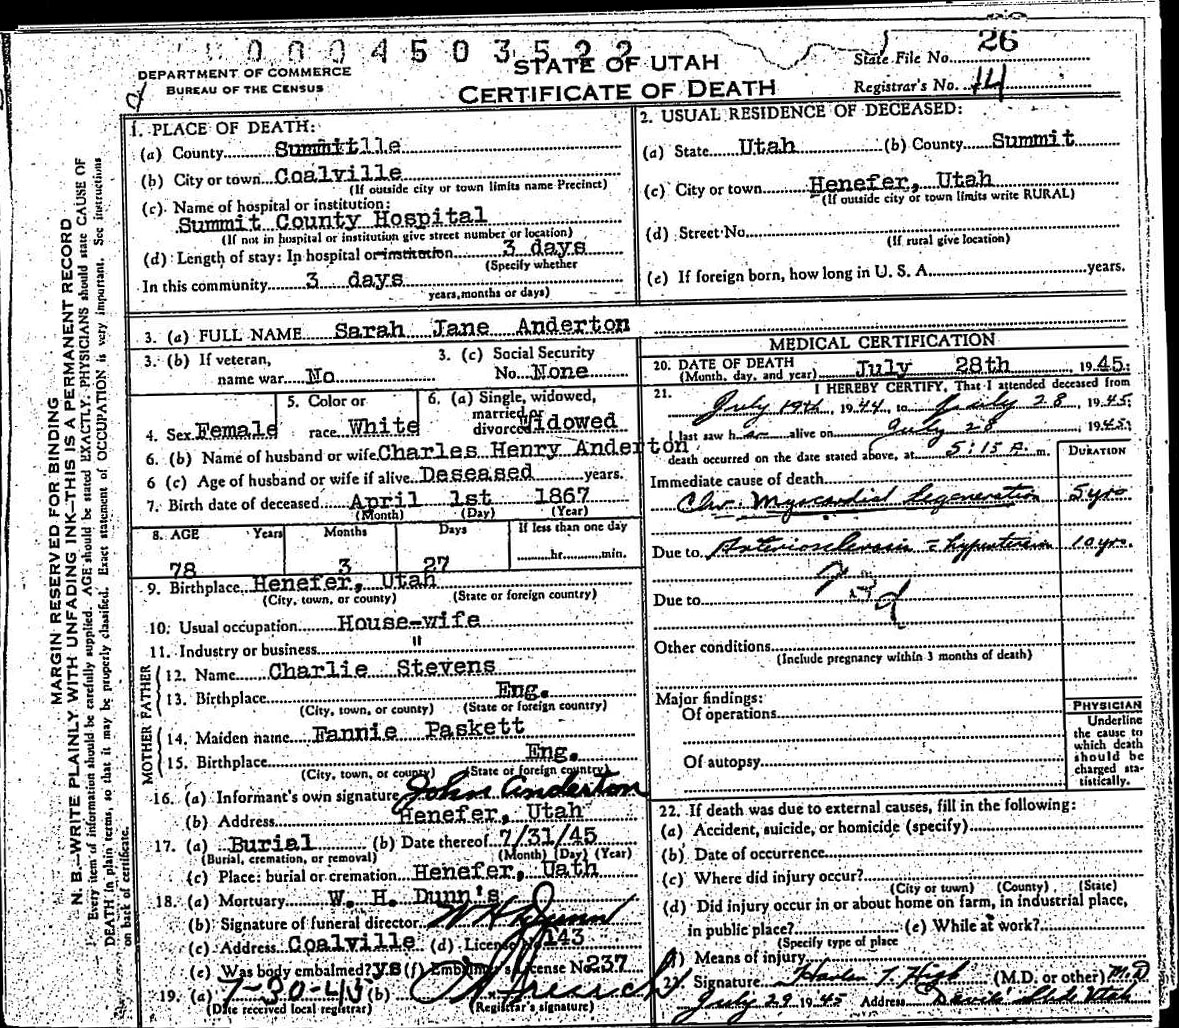 0 0 0 4 5 0 3 5 2 2
DEPARTMENT OF COMMERCE
BUREAU OF THE CENSUS
STATE OF UTAH
CERTIFICATE OF DEATH
State File No. 26
Registrar's No. 14
MARGIN RESERVED FOR BINDING
N. B.—WRITE PLAINLY WITH UNFADING INK—THIS IS A PERMANENT RECORD
Every item of information should be carefully supplied. AGE should be stated EXACTLY. PHYSICIANS should state CAUSE OF
DEATH in plain terms, so that it may be properly classified. Exact statement of OCCUPATION is very important. See instructions
on back of certificate.
1. PLACE OF DEATH:
(a) County Summitlle
(b) City or town Coalville
(If outside city or town limits name Precinct)
(c) Name of hospital or institution:
Summit County Hospital
(If not in hospital or institution give street number or location)
(d) Length of stay: In hospital or institution 3 days
(Specify whether
In this community 3 days
years, months or days)
2. USUAL RESIDENCE OF DECEASED:
(a) State Utah (b) County Summit
(c) City or town Henefer, Utah
(If outside city or town limits write RURAL)
(d) Street No.
(If rural give location)
(e) If foreign born, how long in U. S. A. years.
3. (a) FULL NAME Sarah Jane Anderton
3. (b) If veteran, name war No
3. (c) Social Security No. None
4. Sex Female
5. Color or race White
6. (a) Single, widowed, married or divorced Widowed
6. (b) Name of husband or wife Charles Henry Anderton
6 (c) Age of husband or wife if alive Deseased years.
7. Birth date of deceased April 1st 1867
(Month) (Day) (Year)
8. AGE Years Months Days If less than one day
78 3 27 hr. min.
9. Birthplace Henefer, Utah
(City, town, or county) (State or foreign country)
10. Usual occupation House-wife
11. Industry or business "
FATHER
12. Name Charlie Stevens
13. Birthplace Eng.
(City, town, or county) (State or foreign country)
MOTHER
14. Maiden name Fannie Paskett
15. Birthplace Eng.
(City, town, or county) (State or foreign country)
16. (a) Informant's own signature John Anderton
(b) Address Henefer, Utah
17. (a) Burial (b) Date thereof 7/31/45
(Burial, cremation, or removal) (Month) (Day) (Year)
(c) Place: burial or cremation Henefer, Uath
18. (a) Mortuary W. H. Dunn's
(b) Signature of funeral director W H Dunn
(c) Address Coalville (d) License No. 143
(e) Was body embalmed? ys (f) Embalmer's License No. 237
19. (a) 7-30-45 (b)
(Date received local registrar) (Registrar's signature)
MEDICAL CERTIFICATION
20. DATE OF DEATH July 28th, 1945
(Month, day, and year)
21. I HEREBY CERTIFY, That I attended deceased from
July 19th, 1944, to July 28, 1945
I last saw her alive on July 28, 1945
death occurred on the date stated above, at 5:15 A. m.
DURATION
Immediate cause of death
Chr. Myocardial Degeneration 5 yrs
Due to Arteriosclerosis = hypertension 10 yrs.
Due to
Other conditions
(Include pregnancy within 3 months of death)
Major findings:
Of operations
Of autopsy
PHYSICIAN
Underline
the cause to
which death
should be
charged sta-
tistically.
22. If death was due to external causes, fill in the following:
(a) Accident, suicide, or homicide (specify)
(b) Date of occurrence
(c) Where did injury occur?
(City or town) (County) (State)
(d) Did injury occur in or about home on farm, in industrial place,
in public place? (e) While at work?
(Specify type of place
(f) Means of injury
23. Signature Harlen T. High (M.D. or other) M.D
July 29 1945 Address Devils Slide Utah